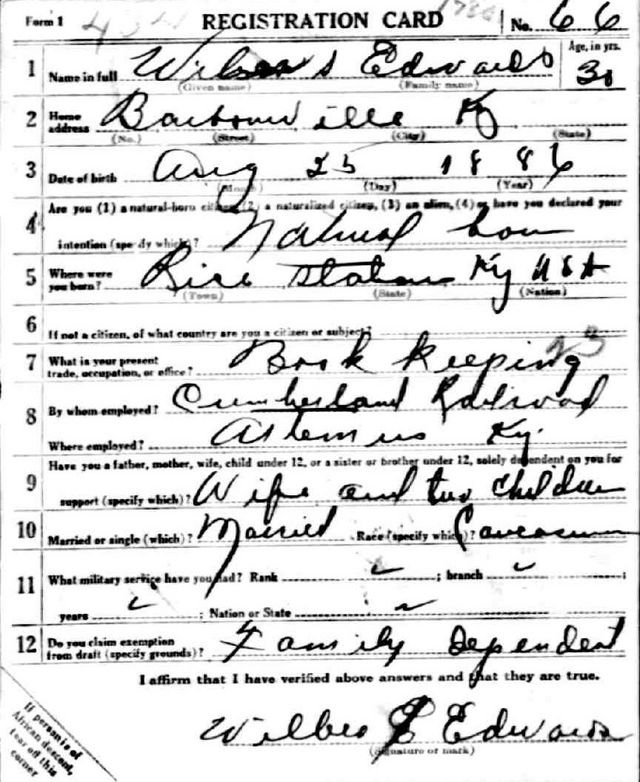 Form 1 REGISTRATION CARD No. 66
1 Name in full Edwards Age, in yrs. 30
(Given name) (Family name)
2 Home address Barbourville Ky
(No.) (Street) (City) (State)
3 Date of birth Aug 25 1886
(Month) (Day) (Year)
4 Are you (1) a natural-born citizen, (2) a naturalized citizen, (3) an alien, (4) or have you declared your
intention (specify which)? Natural born
5 Where were you born? Station Ky USA
(Town) (State) (Nation)
6 If not a citizen, of what country are you a citizen or subject?
7 What is your present trade, occupation, or office? Book keeping 23
8 By whom employed? Cumberland Railroad
Where employed? Artemus Ky.
9 Have you a father, mother, wife, child under 12, or a sister or brother under 12, solely dependent on you for
support (specify which)? Wife and two children
10 Married or single (which)? Married Race (specify which)? Caucasian
11 What military service have you had? Rank ✓ ; branch ✓ ;
years ✓ ; Nation or State ✓
12 Do you claim exemption from draft (specify grounds)? Family Dependent
I affirm that I have verified above answers and that they are true.
Edwards
(Signature or mark)
If person is of
African descent,
tear off this
corner